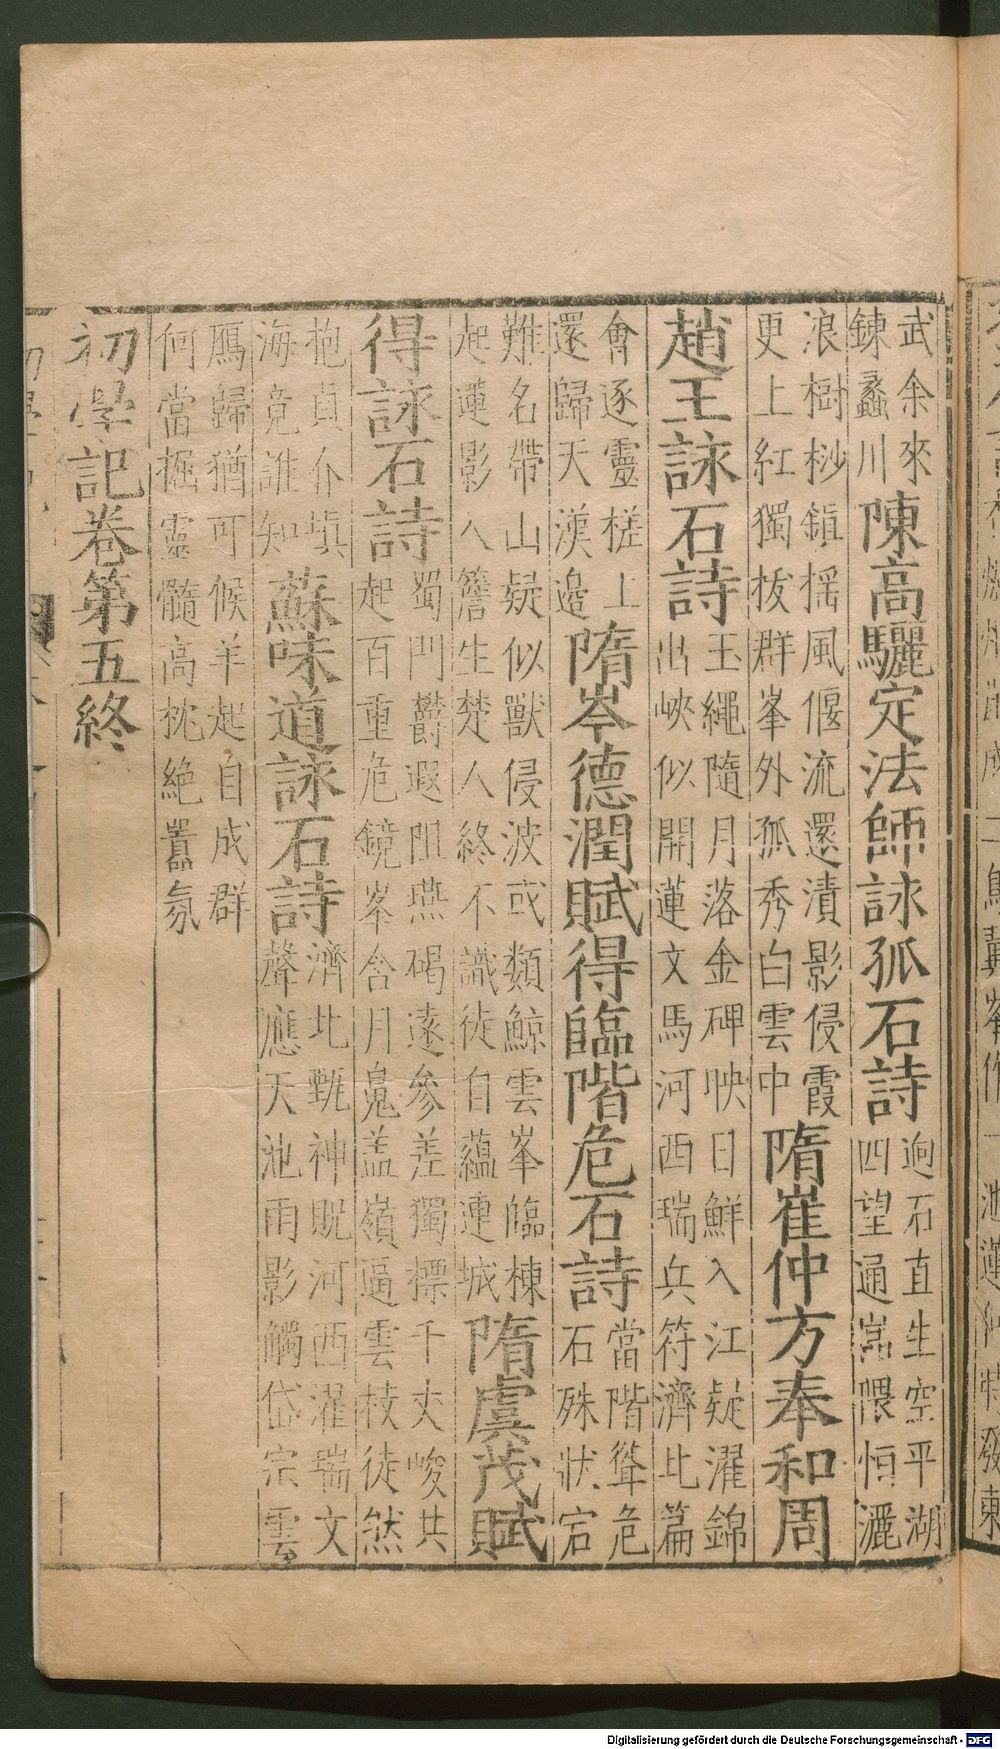 武余來
鍊蠡川
陳高驪定法師詠孤石詩
迥石直生空平湖
四望通嵓隈恒灑
浪樹杪鎮搖風偃流還漬影侵霞
更上紅獨拔群峯外孤秀白雲中
隋崔仲方奉和周
趙王詠石詩
玉繩隨月落金碑映日鮮入江疑濯錦
出峽似開蓮文馬河西瑞兵符濟北篇
會逐靈槎上
還歸天漢邉
隋岑德潤賦得臨階危石詩
當階聳危
石殊狀宕
難名帶山疑似獸侵波或類鯨雲峯臨棟
起蓮影入簷生楚人終不識徒自蘊連城
隋虞茂賦
得詠石詩
蜀門鬱遐阻燕碣遠參差獨標千丈峻共
起百重危鏡峯含月鼂盖嶺逼雲枝徒然
抱貞介塡
海竟誰知
蘇味道詠石詩
濟北甄神貺河西濯瑞文
聲應天池雨影觸岱宗雲
鴈歸猶可候羊起自成群
何當握靈髓高枕絶囂氛
初學記卷第五終
Digitalisierung gefördert durch die Deutsche Forschungsgemeinschaft - DFG